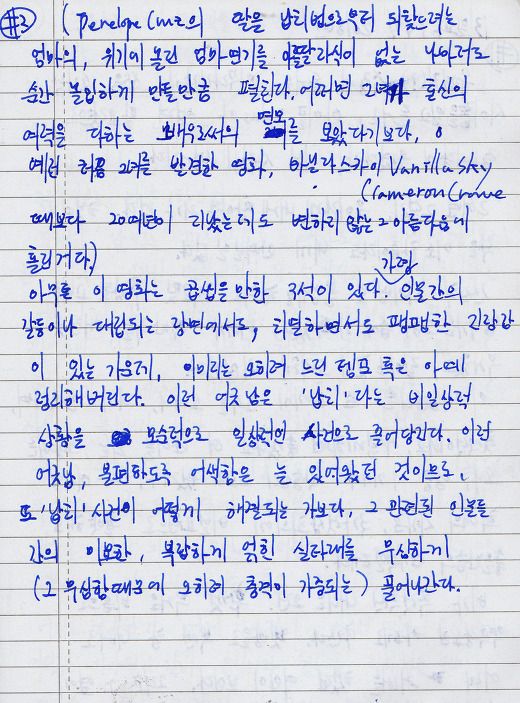 #3 (Penelope Cruz의 딸을 납치범으로부터 되찾으려는
엄마의, 위기에 몰린 엄마연기를 아들딸자식이 없는 나마저도
순간 몰입하게 만들만큼 펼친다. 어쩌면 그녀가 혼신의
여력을 다하는 배우로써의 면모를 보았다기보다,
예전 처음 그녀를 발견한 영화, 바닐라스카이 Vanilla Sky
Cameron Crowe
때보다 20여년이 지났는데도 변하지 않는 그 아름다움에
홀린거다.)
아무튼 이 영화는 곱씹을만한 구석이 있다. 가령 인물간의
갈등이나 대립되는 장면에서도, 치열하면서도 팽팽한 긴장감
이 있는 가운데, 이미지는 오히려 느린 템포 혹은 아예
정지해버린다. 이런 어긋남은 '납치'라는 비일상적
상황을 모순적으로 일상적인 사건으로 끌어당긴다. 이런
어긋남, 불편하도록 어색함은 늘 있어왔던 것이므로,
또 '납치'사건이 어떻게 해결되는 가보다, 그 관련된 인물들
간의 미묘한, 복잡하게 얽힌 실타래를 무심하게
(그 무심함때문에 오히려 충격이 가중되는) 풀어나간다.